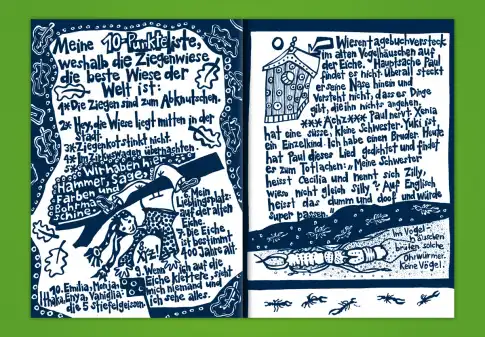 Meine 10-Punkteliste,
weshalb die Ziegenwiese
die beste Wiese der
Welt ist:
1* Die Ziegen sind zum Abknutschen.
2* Hey, die Wiese liegt mitten in der
Stadt.
3* Ziegenkot stinkt nicht.
4* Im Zirkuswagen übernachten.
Wir haben hier
Hammer, Säge,
Farben und
Bohrma-
schine.
Mein
Lieblingsplatz:
auf der alten
Eiche.
Die Eiche
ist bestimmt
400 Jahre alt.
9. Wenn ich auf die
Eiche klettere, sieht
mich niemand und
ich sehe alles.
10. Emilia, Monja,
Ithaka, Enya, Vaniglia:
die 5 stiefelgeissen.
Wiesentagebuchversteck
im alten Vogelhäuschen auf
der Eiche. Hauptsache Paul
findet es nicht. Überall steckt
er seine Nase hinein und
versteht nicht, dass es Dinge
gibt, die ihn nichts angehen.
***Ächz*** Paul nervt. Xenia
hat eine süsse, kleine Schwester. Yuki ist
ein Einzelkind. Ich habe einen Bruder. Heute
hat Paul dieses Lied gedichtet und findet
es zum Totlachen: „Meine Schwester
heisst Cecilia und nennt sich Zilly,
wieso nicht gleich Silly?" Auf Englisch
heisst das dumm und doof und würde
super passen.
Im Vogel-
häuschen
brüten solche
Ohrwürmer.
Keine Vögel.